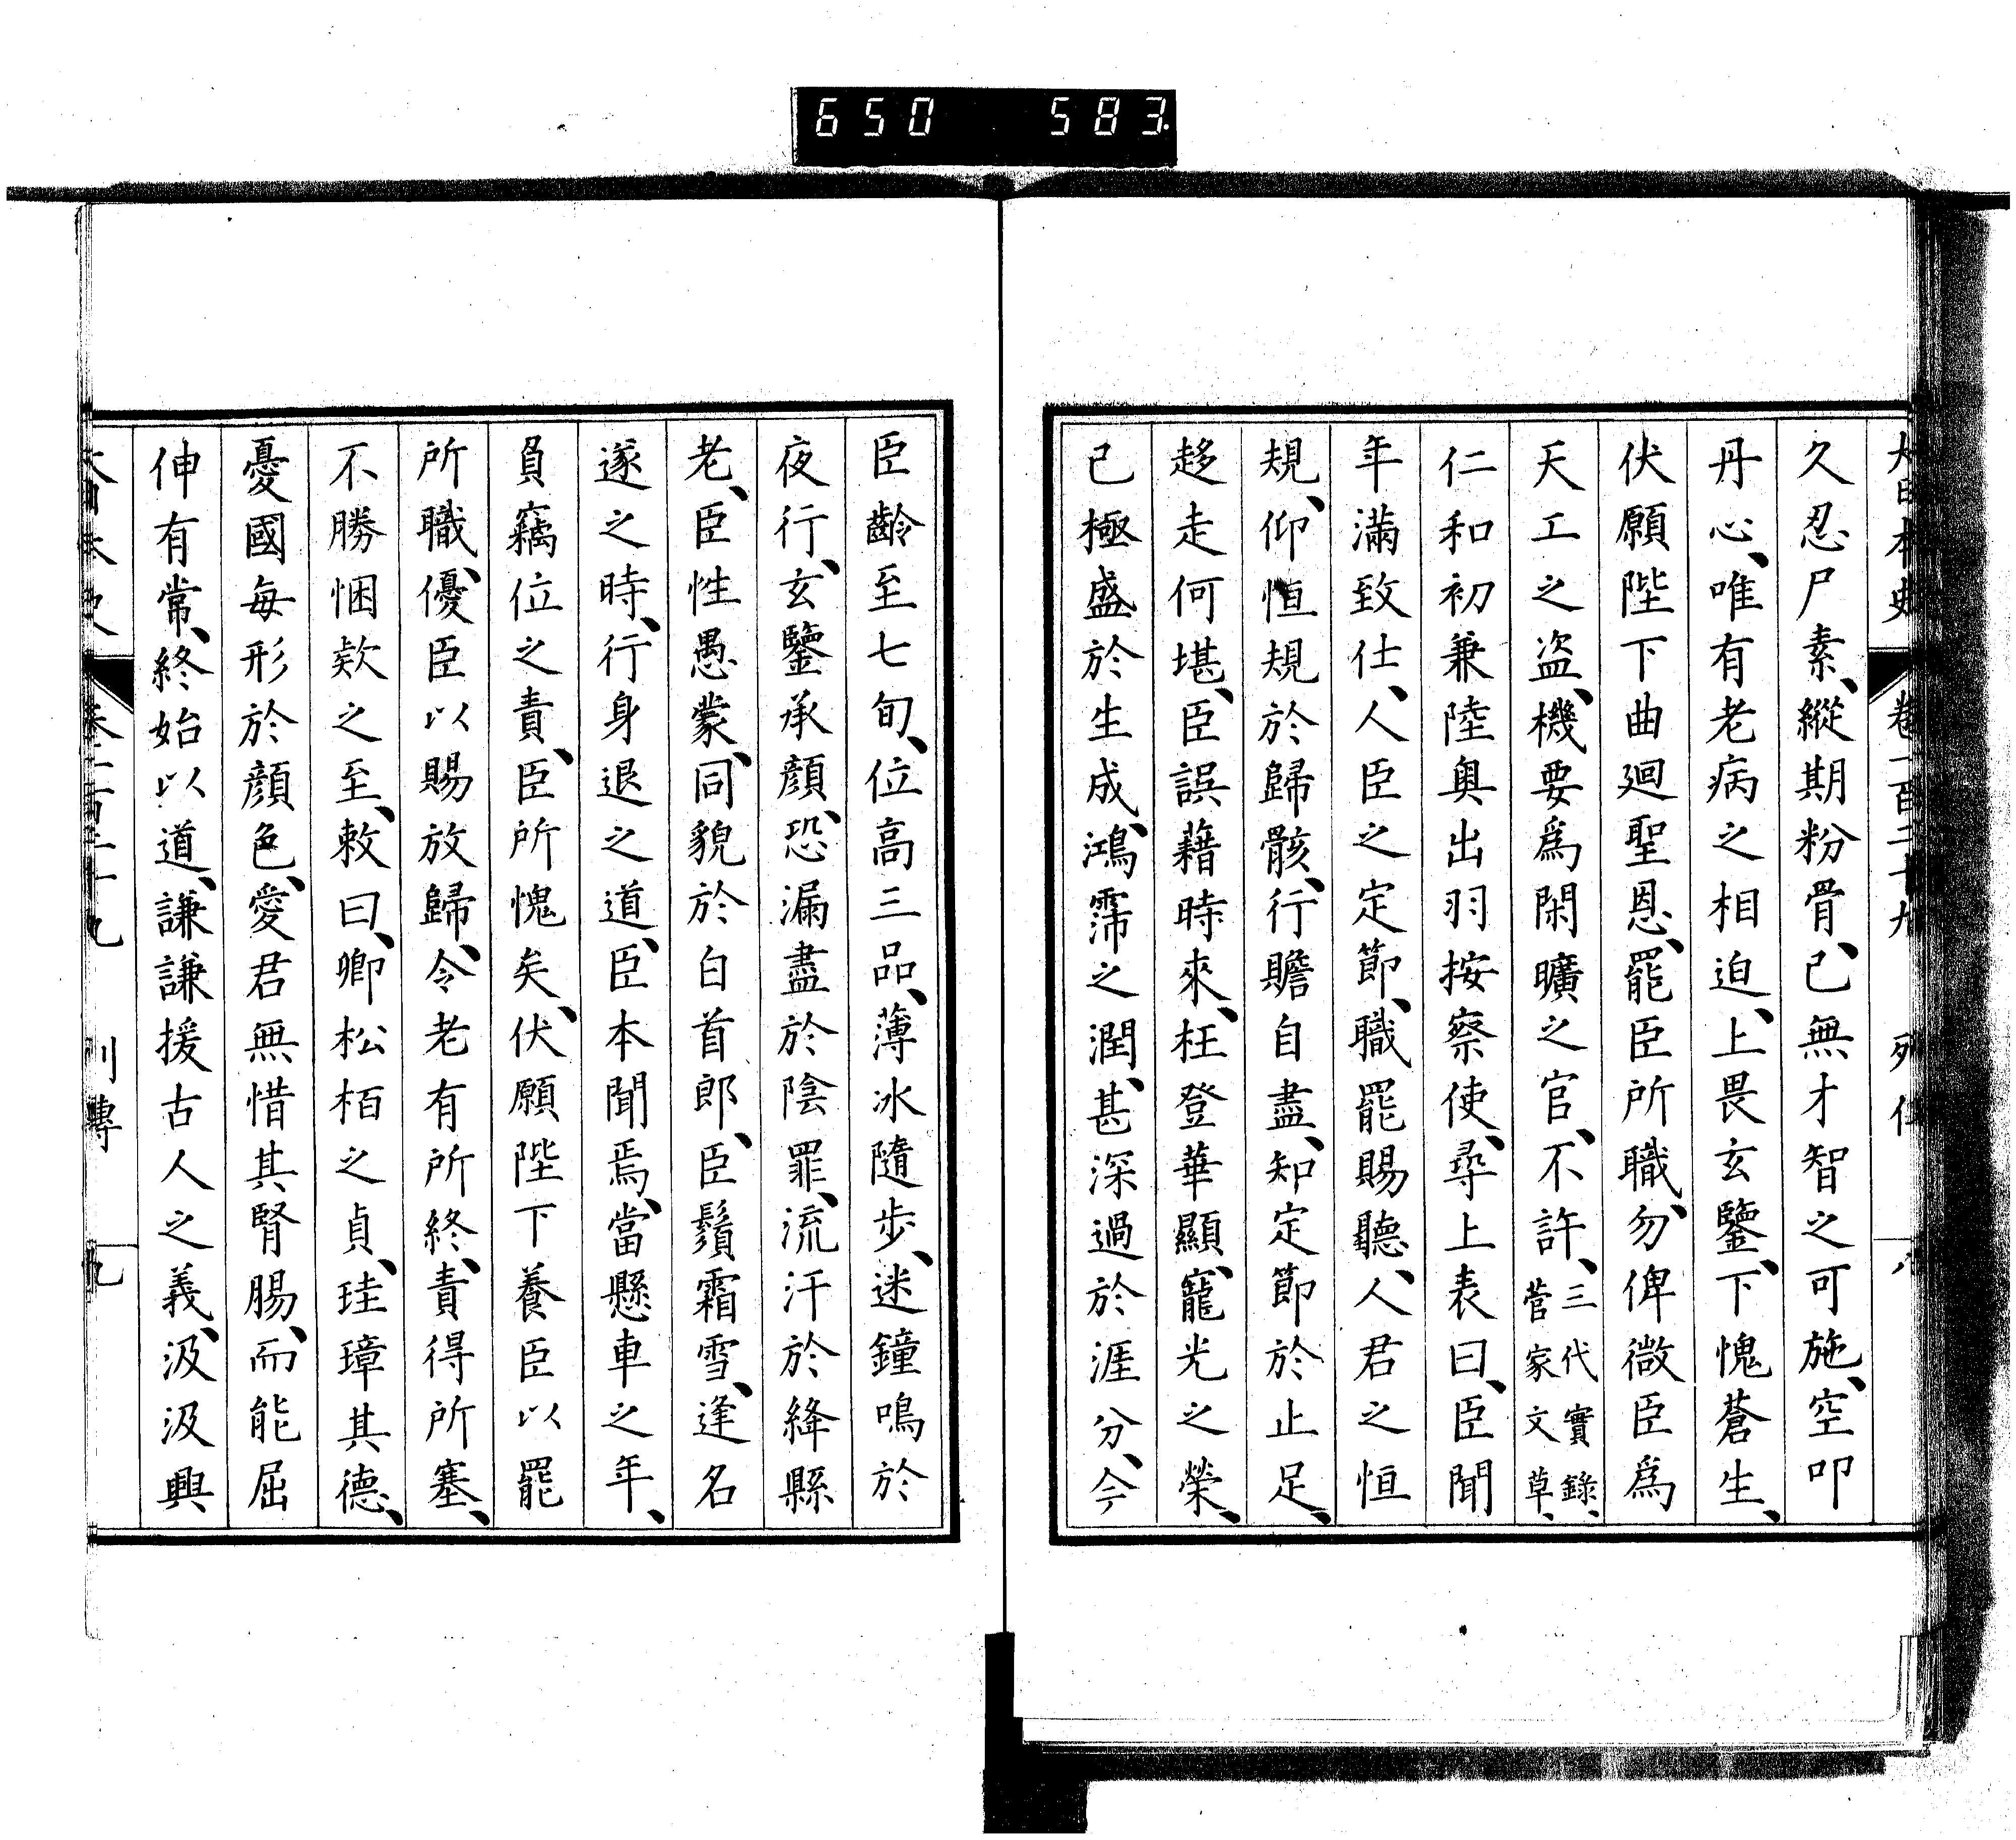 650 583.
大日本史 卷一百二十九 列傳 八
久忍尸素、縱期粉骨、已無才智之可施、空叩
丹心、唯有老病之相迫、上畏玄鑒、下愧蒼生、
伏願陛下曲廻聖恩、罷臣所職、勿俾微臣爲
天工之盜、機要爲閑曠之官、不許、三代實錄、菅家文草、
仁和初兼陸奧出羽按察使、尋上表曰、臣聞
年滿致仕、人臣之定節、職罷賜聽、人君之恒
規、仰恒規於歸骸、行贍自盡、知定節於止足、
趍走何堪、臣誤藉時來、枉登華顯、寵光之榮、
已極盛於生成、鴻霈之潤、甚深過於涯分、今
臣齡至七旬、位高三品、薄冰隨步、迷鐘鳴於
夜行、玄鑒承顏、恐漏盡於陰罪、流汗於絳縣
老、臣性愚蒙、同貌於白首郎、臣鬚霜雪、逢名
遂之時、行身退之道、臣本聞焉、當懸車之年、
負竊位之責、臣所愧矣、伏願陛下養臣以罷
所職、優臣以賜放歸、令老有所終、責得所塞、
不勝悃欵之至、敕曰、卿松栢之貞、珪璋其德、
憂國每形於顏色、愛君無惜其腎腸、而能屈
伸有常、終始以道、謙謙援古人之義、汲汲興
大日本史 卷一百二十九 列傳 九